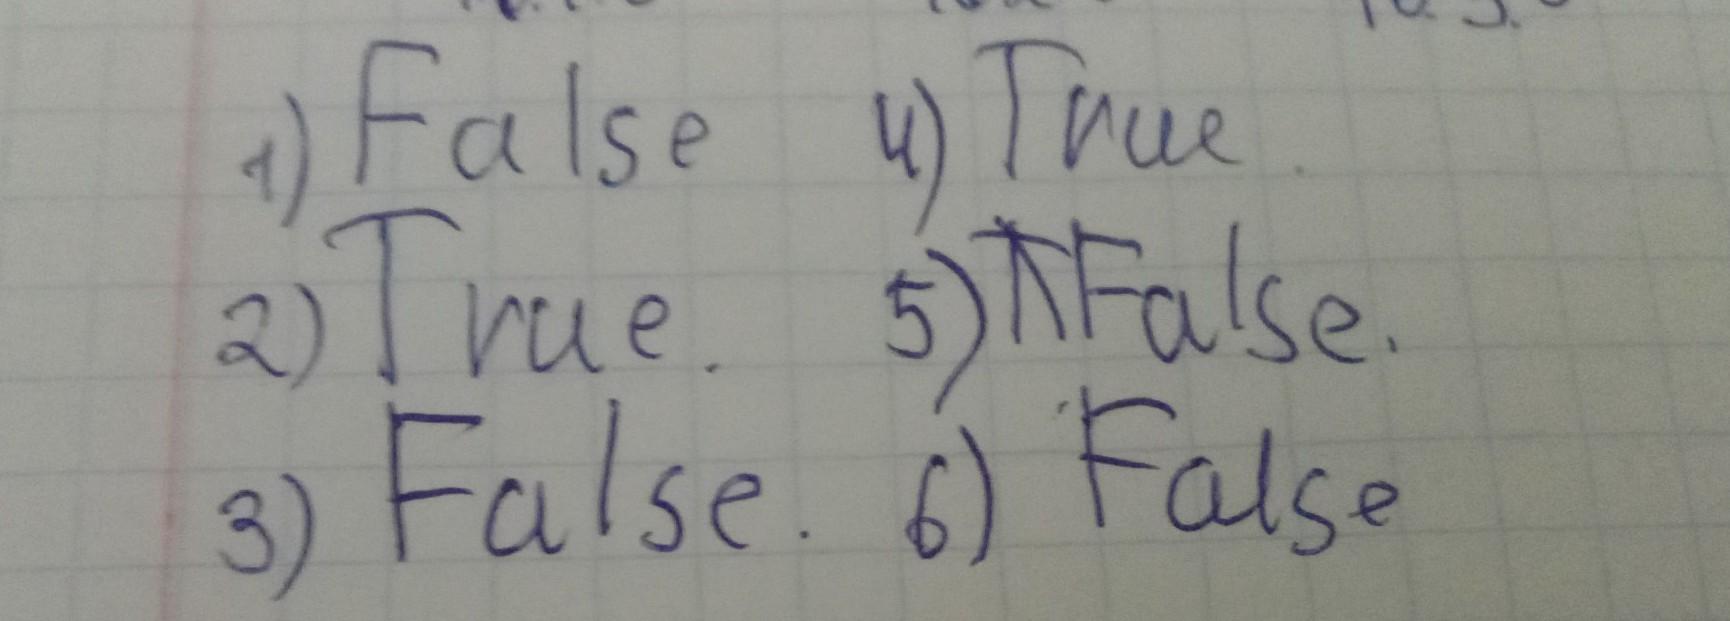 1) False 4) True.
2) True. 5) False.
3) False. 6) False